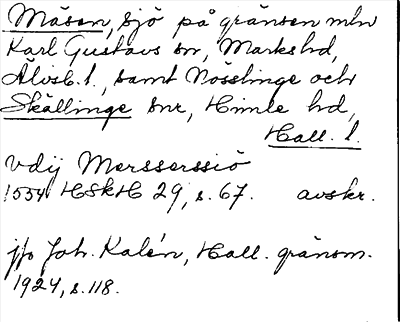 Måsen, sjö på gränsen mln
Karl Gustavs sn, Marks hd,
Älvsb. l., samt Nösslinge och
Skällinge snr, Himle hd,
Hall. l.
vdij Mersserssiö
1554 HSkH 29, s. 67. avskr.
jfr Joh. Kalén, Hall. gränsm.
1924, s. 118.